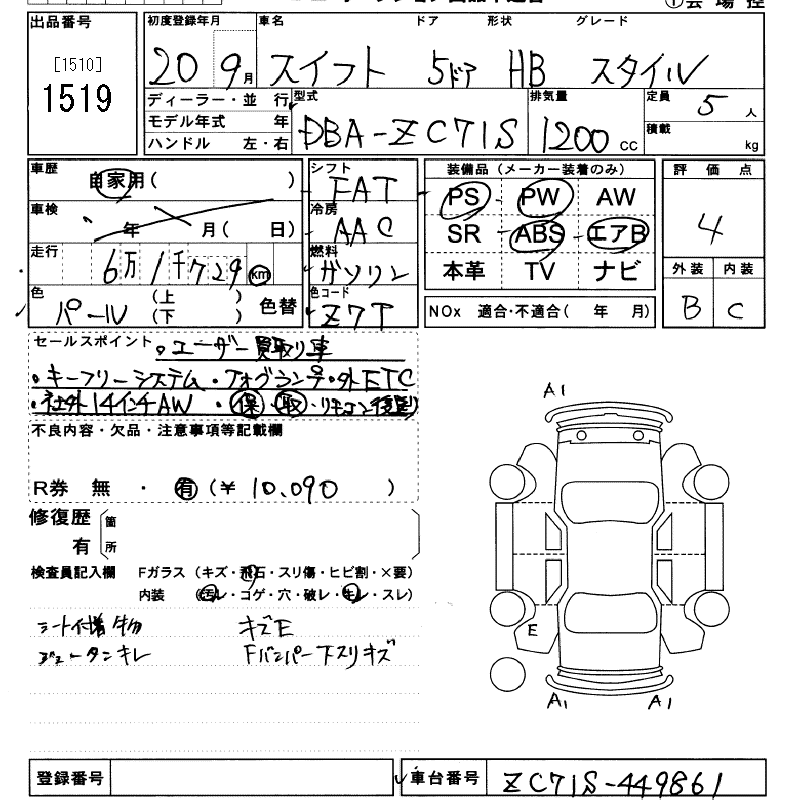 出品番号
[1510]
1519
初度登録年月 車名 ドア 形状 グレード
20 9月 スイフト 5ドア HB スタイル
ディーラー・並行
モデル年式 年
ハンドル 左・右
型式
DBA-ZC71S
排気量
1200 cc
定員 5 人
積載 kg
車歴
自家用( )
車検
年 月( 日)
走行
6万1千729 km
色
パール (上 )
(下 ) 色替
シフト
FAT
冷房
AAC
燃料
ガソリン
色コード
Z7T
装備品(メーカー装着のみ)
PS PW AW
SR ABS エアB
本革 TV ナビ
NOx 適合・不適合( 年 月)
評価点
4
外装 内装
B C
セールスポイント ・ユーザー買取り車
・キーフリーシステム・フォグランプ・外ETC
・社外14インチAW ・保・取・リモコン後送り
不良内容・欠品・注意事項等記載欄
R券 無 ・ 有 (¥ 10.090 )
修復歴 箇
有 所
検査員記入欄 Fガラス (キズ・飛石・スリ傷・ヒビ割・×要)
内装 (汚レ・コゲ・穴・破レ・キレ・スレ)
シート付着物 キズE
Fバンパー下スリキズ
A1
E
A1 A1
登録番号
車台番号 ZC71S-449861